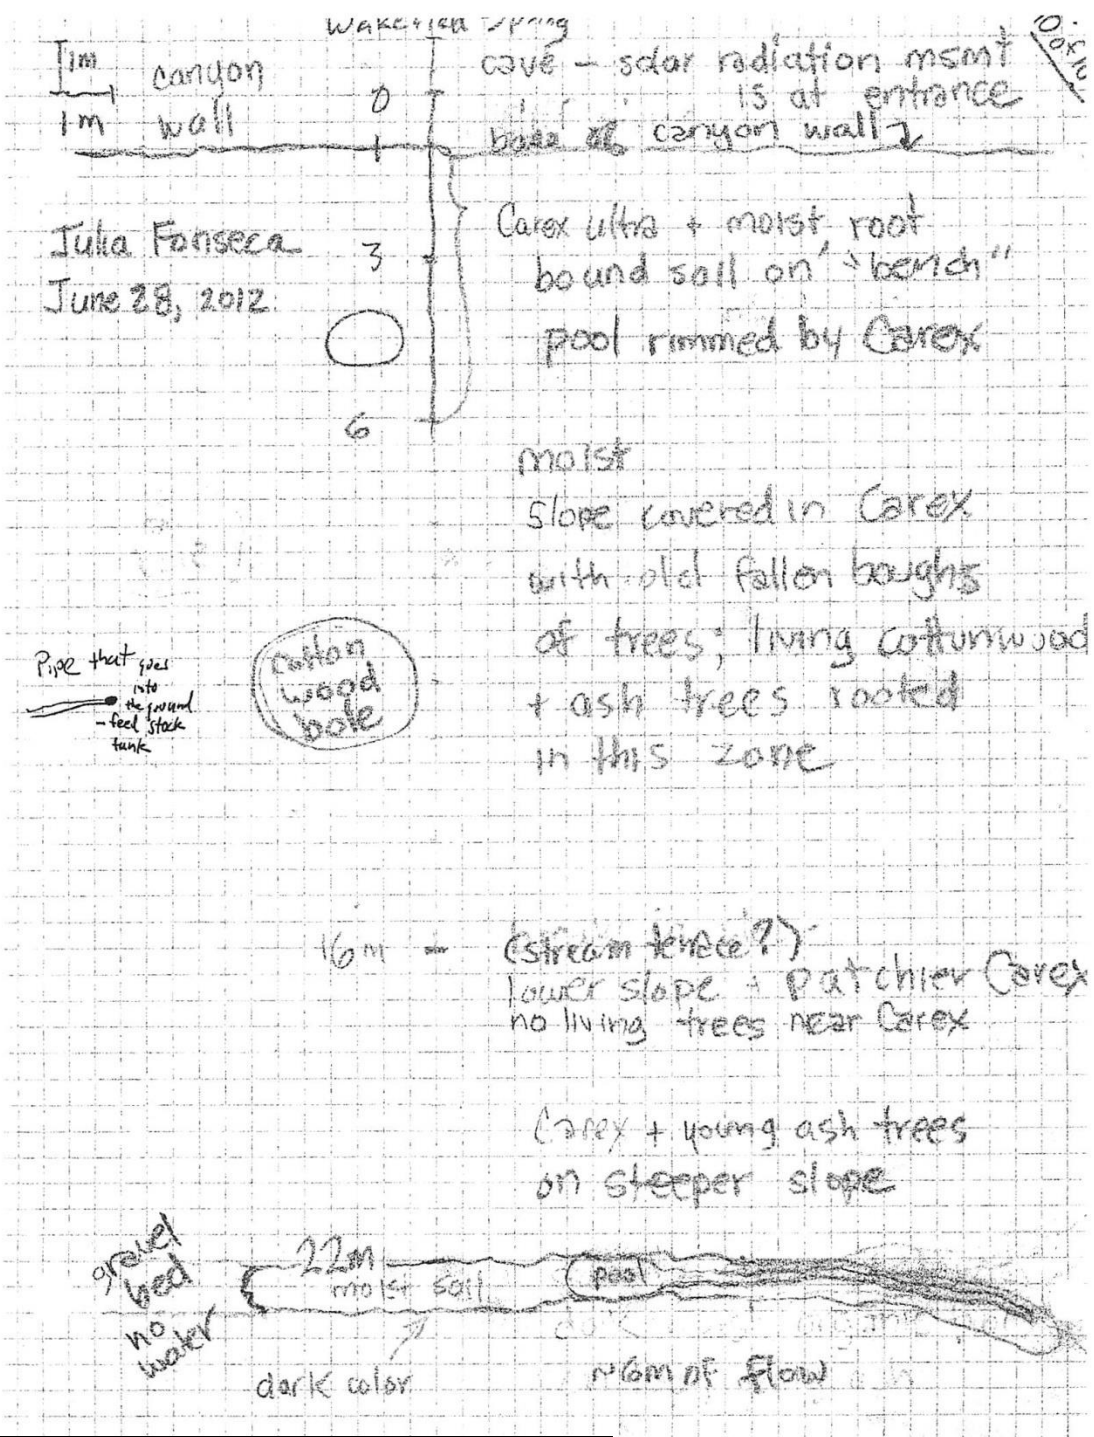 Wakefield Spring
1m
canyon
wall
1m
0
1
cave - solar radiation msmt
is at entrance
base of canyon wall
Julia Fonseca
June 28, 2012
3
6
Carex ultra + moist root
bound soil on "bench"
pool rimmed by Carex
moist
slope covered in Carex
with old fallen boughs
of trees; living cottonwood
+ ash trees rooted
in this zone
Pipe that goes
into
the ground
- feel stock
tank
cotton
wood
bole
16m - (stream terrace?)
lower slope + patchier Carex
no living trees near Carex
Carex + young ash trees
on steeper slope
gravel
bed
no
water
22m
moist soil
pool
dark color
of flow